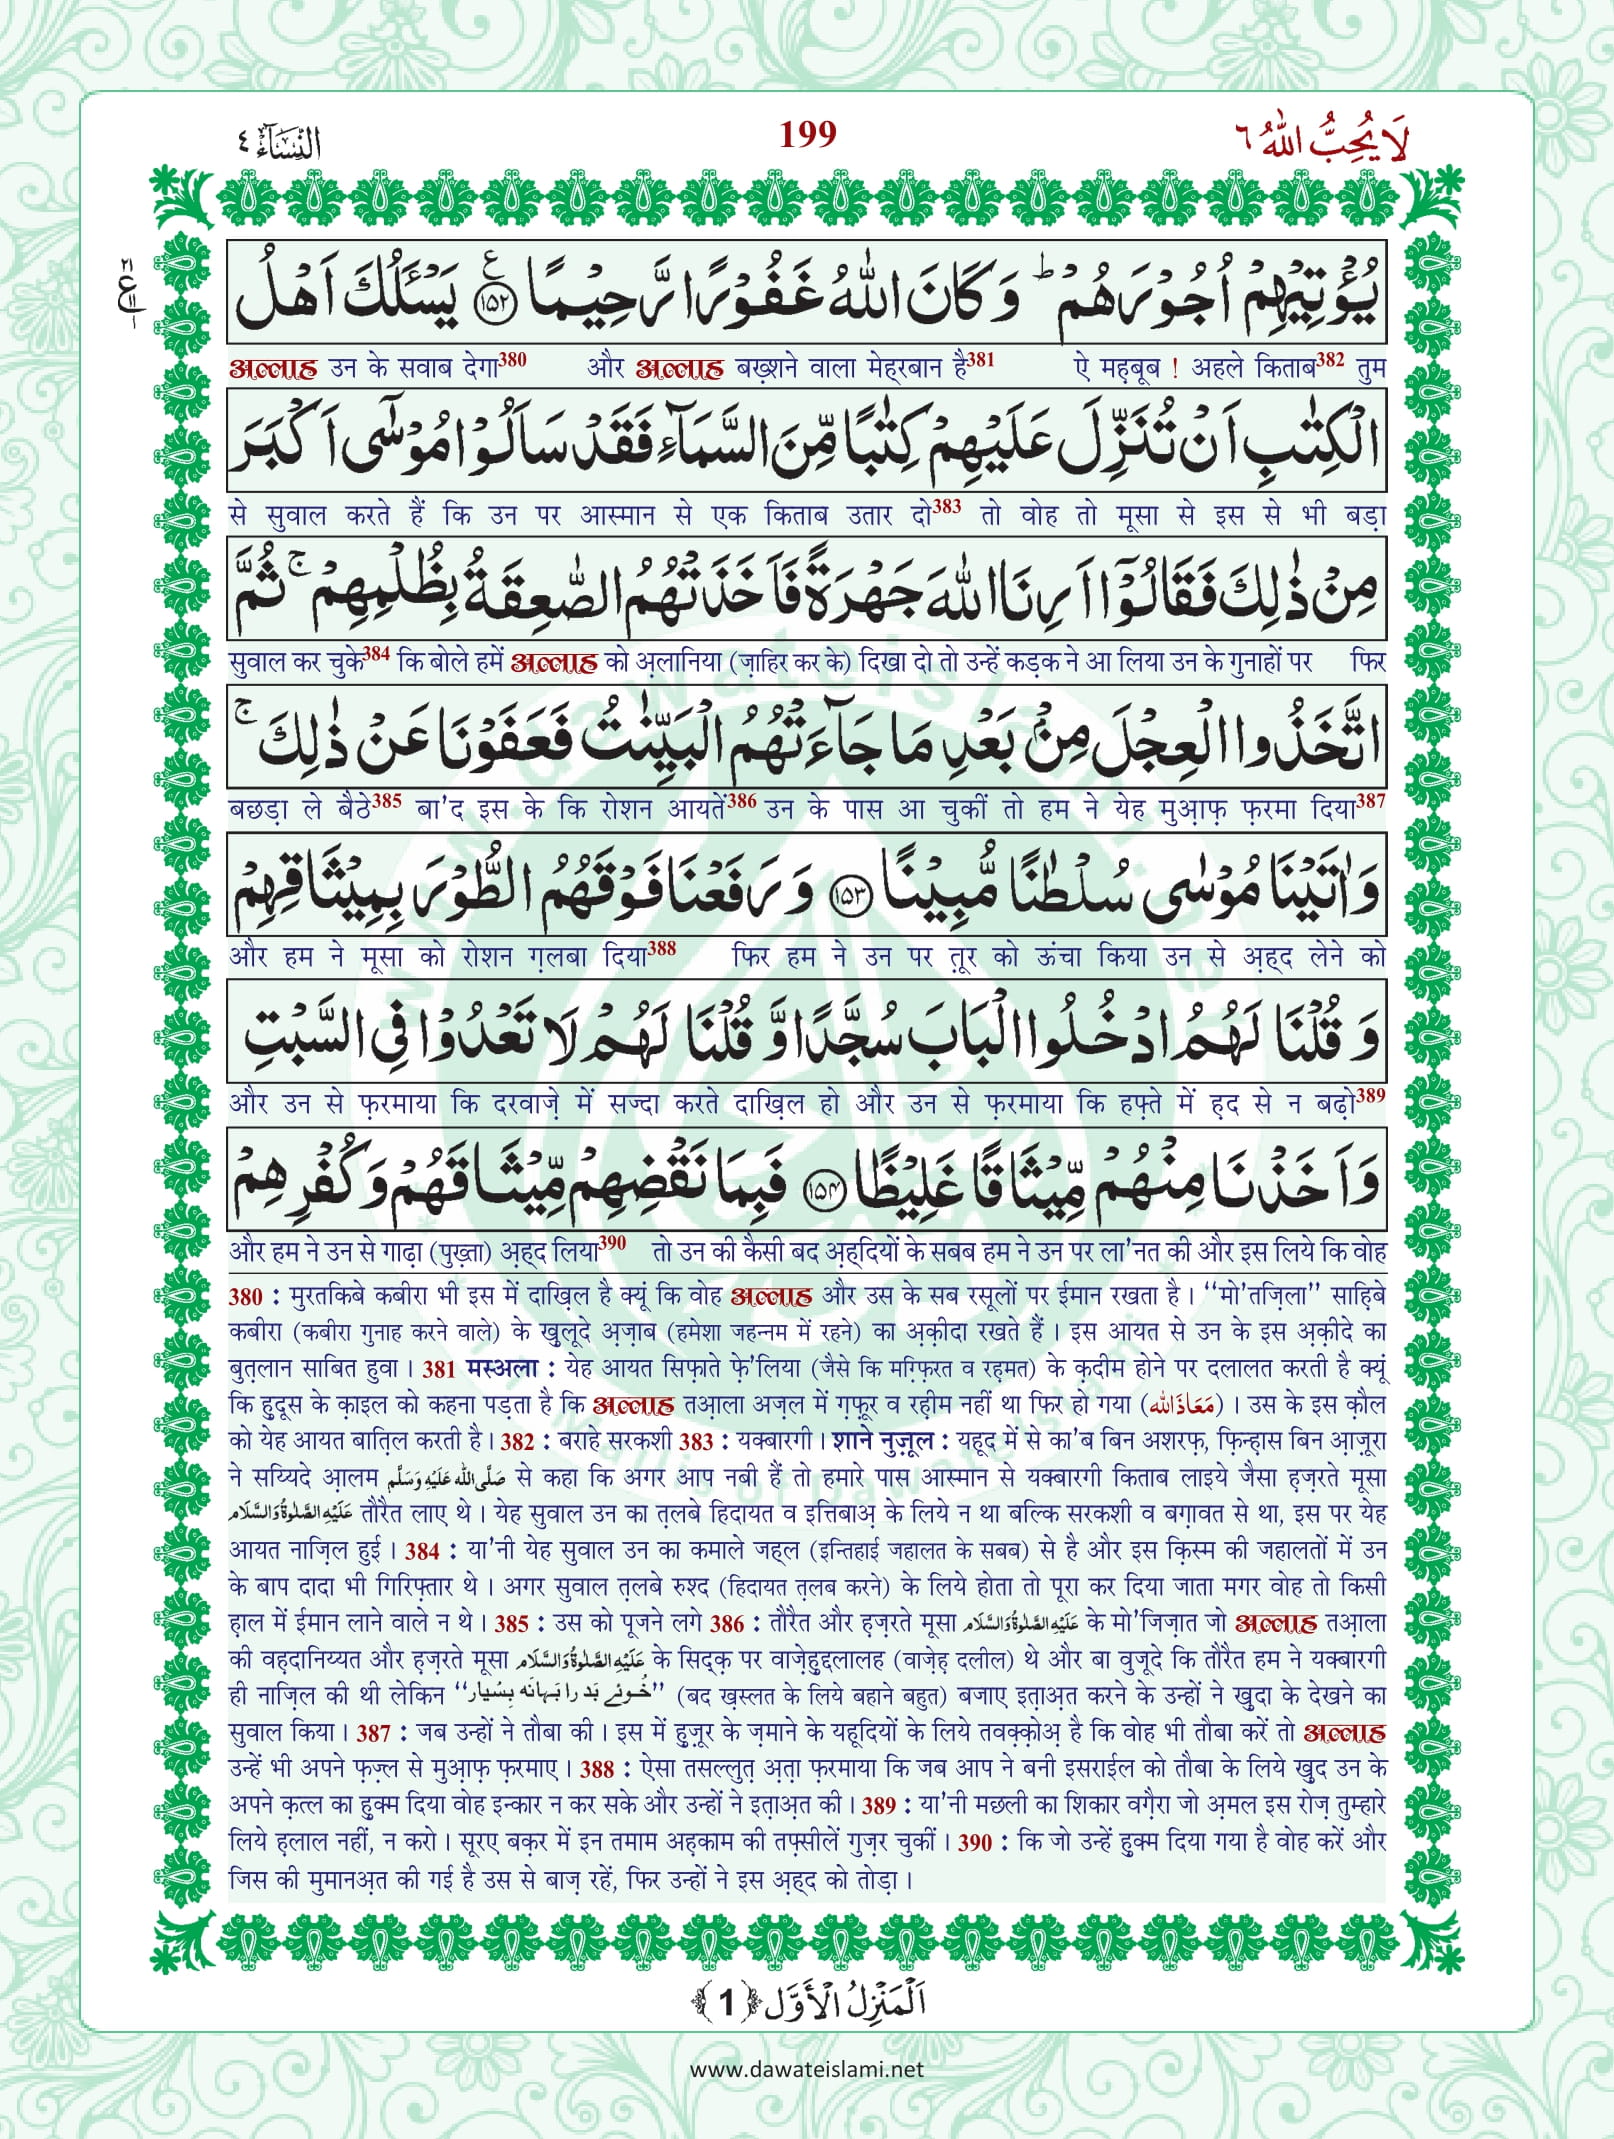 النِّسَآءُ ٤
199
لَا یُحِبُّ اللّٰهُ ٦
یُؤْتِیْهِمْ اُجُوْرَهُمْ ؕ وَ كَانَ اللّٰهُ غَفُوْرًا رَّحِیْمًا ﴿۱۵۲﴾ یَسْـَٔلُكَ اَهْلُ
अल्लाह उन के सवाब देगा380 और अल्लाह बख़्शने वाला मेह्रबान है381 ऐ महबूब ! अहले किताब382 तुम
الْكِتٰبِ اَنْ تُنَزِّلَ عَلَیْهِمْ كِتٰبًا مِّنَ السَّمَآءِ فَقَدْ سَاَلُوْا مُوْسٰۤى اَكْبَرَ
से सुवाल करते हैं कि उन पर आस्मान से एक किताब उतार दो383 तो वोह तो मूसा से इस से भी बड़ा
مِنْ ذٰلِكَ فَقَالُوْۤا اَرِنَا اللّٰهَ جَهْرَةً فَاَخَذَتْهُمُ الصّٰعِقَةُ بِظُلْمِهِمْ ۚ ثُمَّ
सुवाल कर चुके384 कि बोले हमें अल्लाह को अ़लानिया (ज़ाहिर कर के) दिखा दो तो उन्हें कड़क ने आ लिया उन के गुनाहों पर फिर
اتَّخَذُوا الْعِجْلَ مِنْۢ بَعْدِ مَا جَآءَتْهُمُ الْبَیِّنٰتُ فَعَفَوْنَا عَنْ ذٰلِكَ ۚ
बछड़ा ले बैठे385 बा’द इस के कि रोशन आयतें386 उन के पास आ चुकीं तो हम ने येह मुआ़फ़ फ़रमा दिया387
وَ اٰتَیْنَا مُوْسٰى سُلْطٰنًا مُّبِیْنًا ﴿۱۵۳﴾ وَ رَفَعْنَا فَوْقَهُمُ الطُّوْرَ بِمِیْثَاقِهِمْ
और हम ने मूसा को रोशन ग़लबा दिया388 फिर हम ने उन पर त़ूर को ऊंचा किया उन से अ़ह्द लेने को
وَ قُلْنَا لَهُمُ ادْخُلُوا الْبَابَ سُجَّدًا وَّ قُلْنَا لَهُمْ لَا تَعْدُوْا فِی السَّبْتِ
और उन से फ़रमाया कि दरवाज़े में सज्दा करते दाख़िल हो और उन से फ़रमाया कि हफ़्ते में ह़द से न बढ़ो389
وَ اَخَذْنَا مِنْهُمْ مِّیْثَاقًا غَلِیْظًا ﴿۱۵۴﴾ فَبِمَا نَقْضِهِمْ مِّیْثَاقَهُمْ وَ كُفْرِهِمْ
और हम ने उन से गाढ़ा (पुख़्ता) अ़ह्द लिया390 तो उन की कैसी बद अ़ह्दियों के सबब हम ने उन पर ला’नत की और इस लिये कि वोह
380 : मुरतकिबे कबीरा भी इस में दाख़िल है क्यूं कि वोह अल्लाह और उस के सब रसूलों पर ईमान रखता है। “मो’तज़िला” साह़िबे
कबीरा (कबीरा गुनाह करने वाले) के ख़ुलूदे अ़ज़ाब (हमेशा जहन्नम में रहने) का अ़क़ीदा रखते हैं। इस आयत से उन के इस अ़क़ीदे का
बुत़लान साबित हुवा। 381 मस्अला : येह आयत सिफ़ाते फ़े’लिया (जैसे कि मग्फ़िरत व रह़मत) के क़दीम होने पर दलालत करती है क्यूं
कि ह़ुदूस के क़ाइल को कहना पड़ता है कि अल्लाह तआ़ला अज़ल में ग़फ़ूर व रह़ीम नहीं था फिर हो गया (مَعَاذَ اللّٰه)। उस के इस क़ौल
को येह आयत बात़िल करती है। 382 : बराहे सरकशी 383 : यक्बारगी। शाने नुज़ूल : यहूद में से का’ब बिन अशरफ़, फ़िन्ह़ास बिन आ़ज़ूरा
ने सय्यिदे आ़लम صَلَّى اللّٰه عَلَيْهِ وَسَلَّم से कहा कि अगर आप नबी हैं तो हमारे पास आस्मान से यक्बारगी किताब लाइये जैसा ह़ज़रते मूसा
عَلَيْهِ الصَّلٰوةُ وَالسَّلَام तौरैत लाए थे। येह सुवाल उन का त़लबे हिदायत व इत्तिबाअ़ के लिये न था बल्कि सरकशी व बग़ावत से था, इस पर येह
आयत नाज़िल हुई। 384 : या’नी येह सुवाल उन का कमाले जह्ल (इन्तिहाई जहालत के सबब) से है और इस क़िस्म की जहालतों में उन
के बाप दादा भी गिरिफ़्तार थे। अगर सुवाल त़लबे रुश्द (हिदायत त़लब करने) के लिये होता तो पूरा कर दिया जाता मगर वोह तो किसी
ह़ाल में ईमान लाने वाले न थे। 385 : उस को पूजने लगे 386 : तौरैत और ह़ज़रते मूसा عَلَيْهِ الصَّلٰوةُ وَالسَّلَام के मो’जिज़ात जो अल्लाह तआ़ला
की वह़दानिय्यत और ह़ज़रते मूसा عَلَيْهِ الصَّلٰوةُ وَالسَّلَام के सिद्क़ पर वाज़ेह़ुद्दलालह (वाज़ेह़ दलील) थे और बा वुजूदे कि तौरैत हम ने यक्बारगी
ही नाज़िल की थी लेकिन “خُوئے بَد را بَہانہ بِسْیار” (बद ख़स्लत के लिये बहाने बहुत) बजाए इत़ाअ़त करने के उन्हों ने ख़ुदा के देखने का
सुवाल किया। 387 : जब उन्हों ने तौबा की। इस में ह़ुज़ूर के ज़माने के यहूदियों के लिये तवक़्क़ोअ़ है कि वोह भी तौबा करें तो अल्लाह
उन्हें भी अपने फ़ज़्ल से मुआ़फ़ फ़रमाए। 388 : ऐसा तसल्लुत़ अ़त़ा फ़रमाया कि जब आप ने बनी इसराईल को तौबा के लिये ख़ुद उन के
अपने क़त्ल का ह़ुक्म दिया वोह इन्कार न कर सके और उन्हों ने इत़ाअ़त की। 389 : या’नी मछली का शिकार वग़ैरा जो अ़मल इस रोज़ तुम्हारे
लिये ह़लाल नहीं, न करो। सूरए बक़र में इन तमाम अह़काम की तफ़्सीलें गुज़र चुकीं। 390 : कि जो उन्हें ह़ुक्म दिया गया है वोह करें और
जिस की मुमानअ़त की गई है उस से बाज़ रहें, फिर उन्हों ने इस अ़ह्द को तोड़ा।
اَلْمَنْزِلُ الْاَوَّل ﴿1﴾
www.dawateislami.net